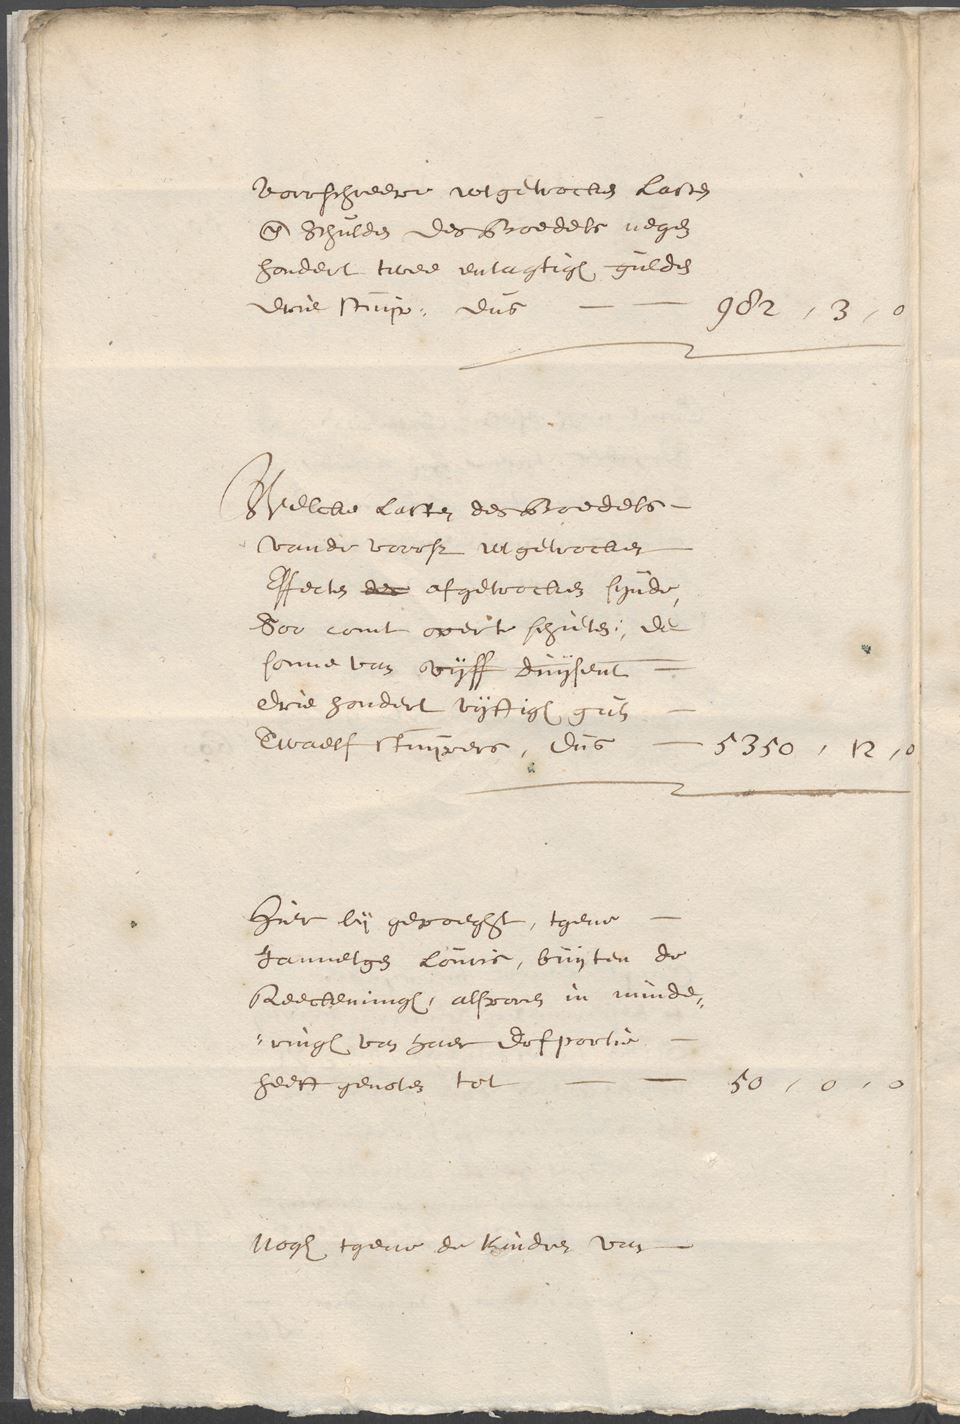 voorschreeve uytgetrocken Lasten
en Schulden des Boedels negen
hondert twee entagtigh gulden
drie stuyv: dus — — 982, 3, 0
Welcke Lasten des Boedels —
vande voorsz uytgetrocken —
Effecten afgetrocken synde,
Soo comt over te schieten, de
somme van vyff duysent —
drie hondert vyftigh guls —
Twaelf stuyvers, dus — 5350, 12, 0
Hier by gevoeght, tgene —
Jannetges Louris, buyten de
Reeckeningh, alvoren in minde„
„ringh van haer Dofportie —
heeft genoten tot — — 50, 0, 0
Nogh tgene de kindren van —